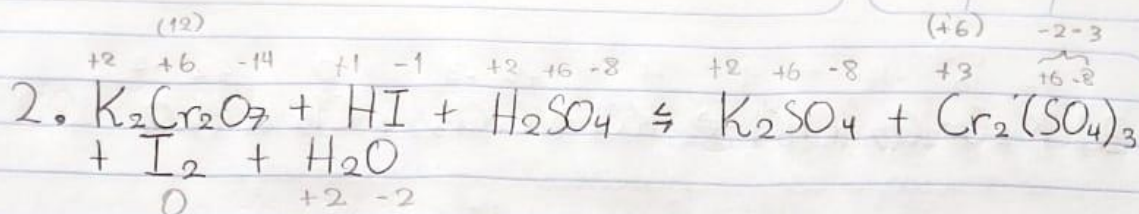 (12) (+6) -2-3
+2 +6 -14 +1 -1 +2 +6 -8 +2 +6 -8 +3 +6 -8
2. K₂Cr₂O₇ + HI + H₂SO₄ ⇆ K₂SO₄ + Cr₂(SO₄)₃
+ I₂ + H₂O
0 +2 -2